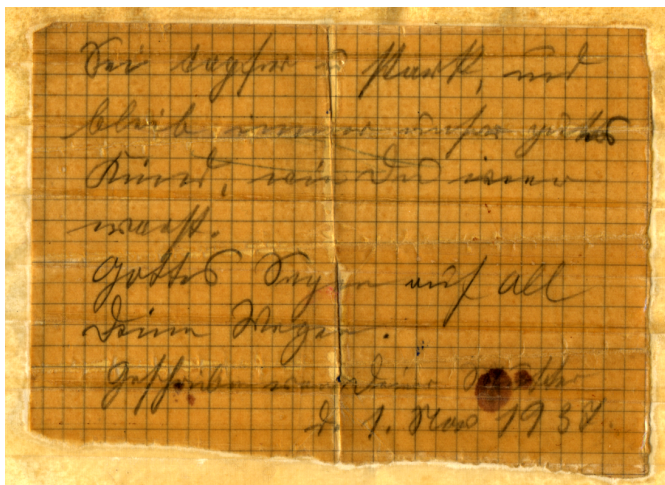 Sei tapfer u stark, und
bleib immer unser gutes
Kind, wie Du imer
warst.
Gottes Segen auf all
Deine Wegen.
Geschrieben von Deiner
d. 1. Nov